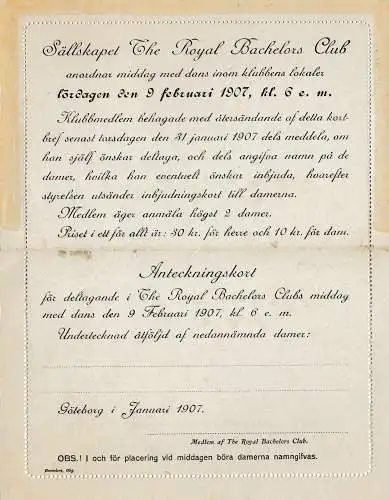 Sällskapet The Royal Bachelors Club
anordnar middag med dans inom klubbens lokaler
lördagen den 9 februari 1907, kl. 6 e. m.
Klubbmedlem behagade med återsändande af detta kort-
bref senast torsdagen den 31 januari 1907 dels meddela, om
han själf önskar deltaga, och dels angifva namn på de
damer, hvilka han eventuelt önskar inbjuda, hvarefter
styrelsen utsänder inbjudningskort till damerna.
Medlem äger anmäla högst 2 damer.
Priset i ett för allt är: 30 kr. för herre och 10 kr. för dam.
Anteckningskort
för deltagande i The Royal Bachelors Clubs middag
med dans den 9 Februari 1907, kl. 6 e. m.
Undertecknad åtföljd af nedannämnda damer:
Göteborg i Januari 1907.
Medlem af The Royal Bachelors Club.
OBS.! I och för placering vid middagen böra damerna namngifvas.